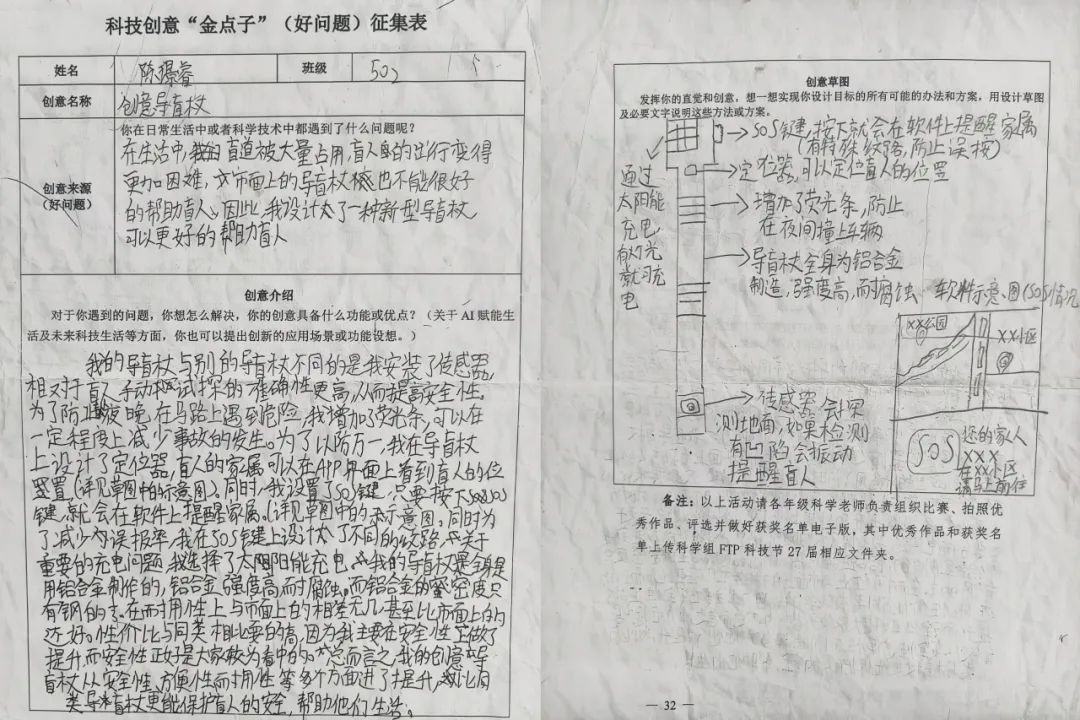 科技创意“金点子”（好问题）征集表
姓名 陈璟睿 班级 502
创意名称 创意导盲杖
创意来源
（好问题）
你在日常生活中或者科学技术中都遇到了什么问题呢？
在生活中，盲道被大量占用，盲人的出行变得
更加困难，市面上的导盲杖也不能很好
的帮助盲人。因此，我设计了一种新型导盲杖，
可以更好的帮助盲人
创意介绍
对于你遇到的问题，你想怎么解决，你的创意具备什么功能或优点？（关于 AI 赋能生
活及未来科技生活等方面，你也可以提出创新的应用场景或功能设想。）
我的导盲杖与别的导盲杖不同的是我安装了传感器，
相对于盲人手动试探的准确性更高，从而提高安全性。
为了防止夜晚在马路上遇到危险，我增加了荧光条，可以在
一定程度上减少事故的发生。为了以防万一，我在导盲杖
上设计了定位器，盲人的家属可以在APP界面上看到盲人的位
置（详见草图中的示意图）。同时，我设置了SOS键，只要按下SOS
键，就会在软件上提醒家属。（详见草图中的示意图。同时为
了减少误报率，我在SOS键上设计了不同的纹路，关于
重要的充电问题，我选择了太阳能充电。我的导盲杖是全身是
用铝合金制作的，铝合金强度高而耐腐蚀。而铝合金的密度只
有钢的 在耐用性上与市面上的相差无几甚至比市面上的
还好。性价比与同类相比要的高，因为我主要在安全性上做了
提升，而安全性正好是大家较为看中的。总而言之，我的创意导
盲杖从安全性、方便性、耐用性等多个方面进行了提升，比同
类导盲杖更能保护盲人的安全，帮助他们生活。
创意草图
发挥你的直觉和创意，想一想实现你设计目标的所有可能的办法和方案，用设计草图
及必要文字说明这些方法或方案。
SOS键，按下就会在软件上提醒家属
（有特殊纹路，防止误按）
定位器，可以定位盲人的位置
通过
太阳能
充电，
有灯光
就可充
电
增加了荧光条，防止
在夜间撞上车辆
导盲杖全身为铝合金
制造，强度高，耐腐蚀
软件示意图（SOS情况
XX公园
XX小区
SOS
您的家人
XXX
在XX小区
请马上前往
传感器，会探
测地面，如果检测
有凹陷会振动
提醒盲人
备注：以上活动请各年级科学老师负责组织比赛、拍照优
秀作品、评选并做好获奖名单电子版，其中优秀作品和获奖名
单上传科学组 FTP 科技节 27 届相应文件夹。
— 32 —